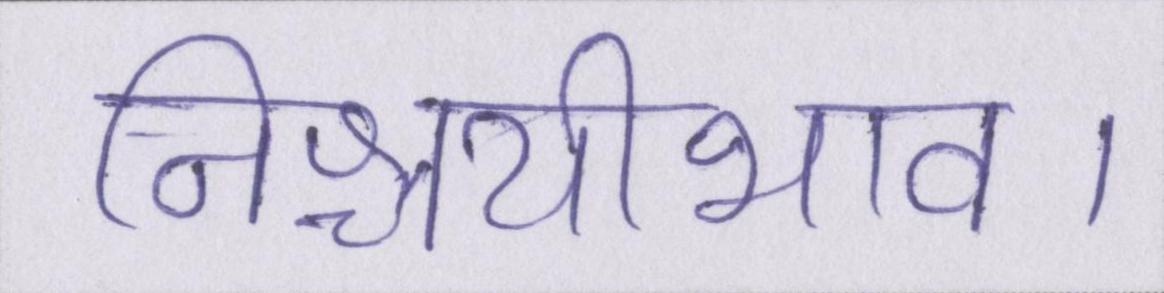 निश्चयीभाव।